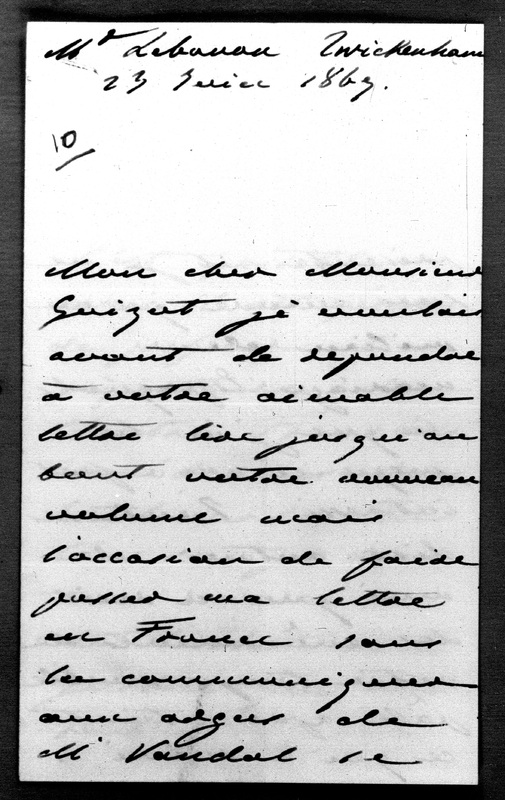 Mt Lebanon Twickenham
23 Juin 1867.
10
Mon cher Monsieur
Guizot je voulais
avant de repondre
à votre aimable
lettre lire jusqu'au
bout votre nouveau
volume mais
l'occasion de faire
passer ma lettre
en France sans
la communiquer
aux argus de
Mr Vandal se